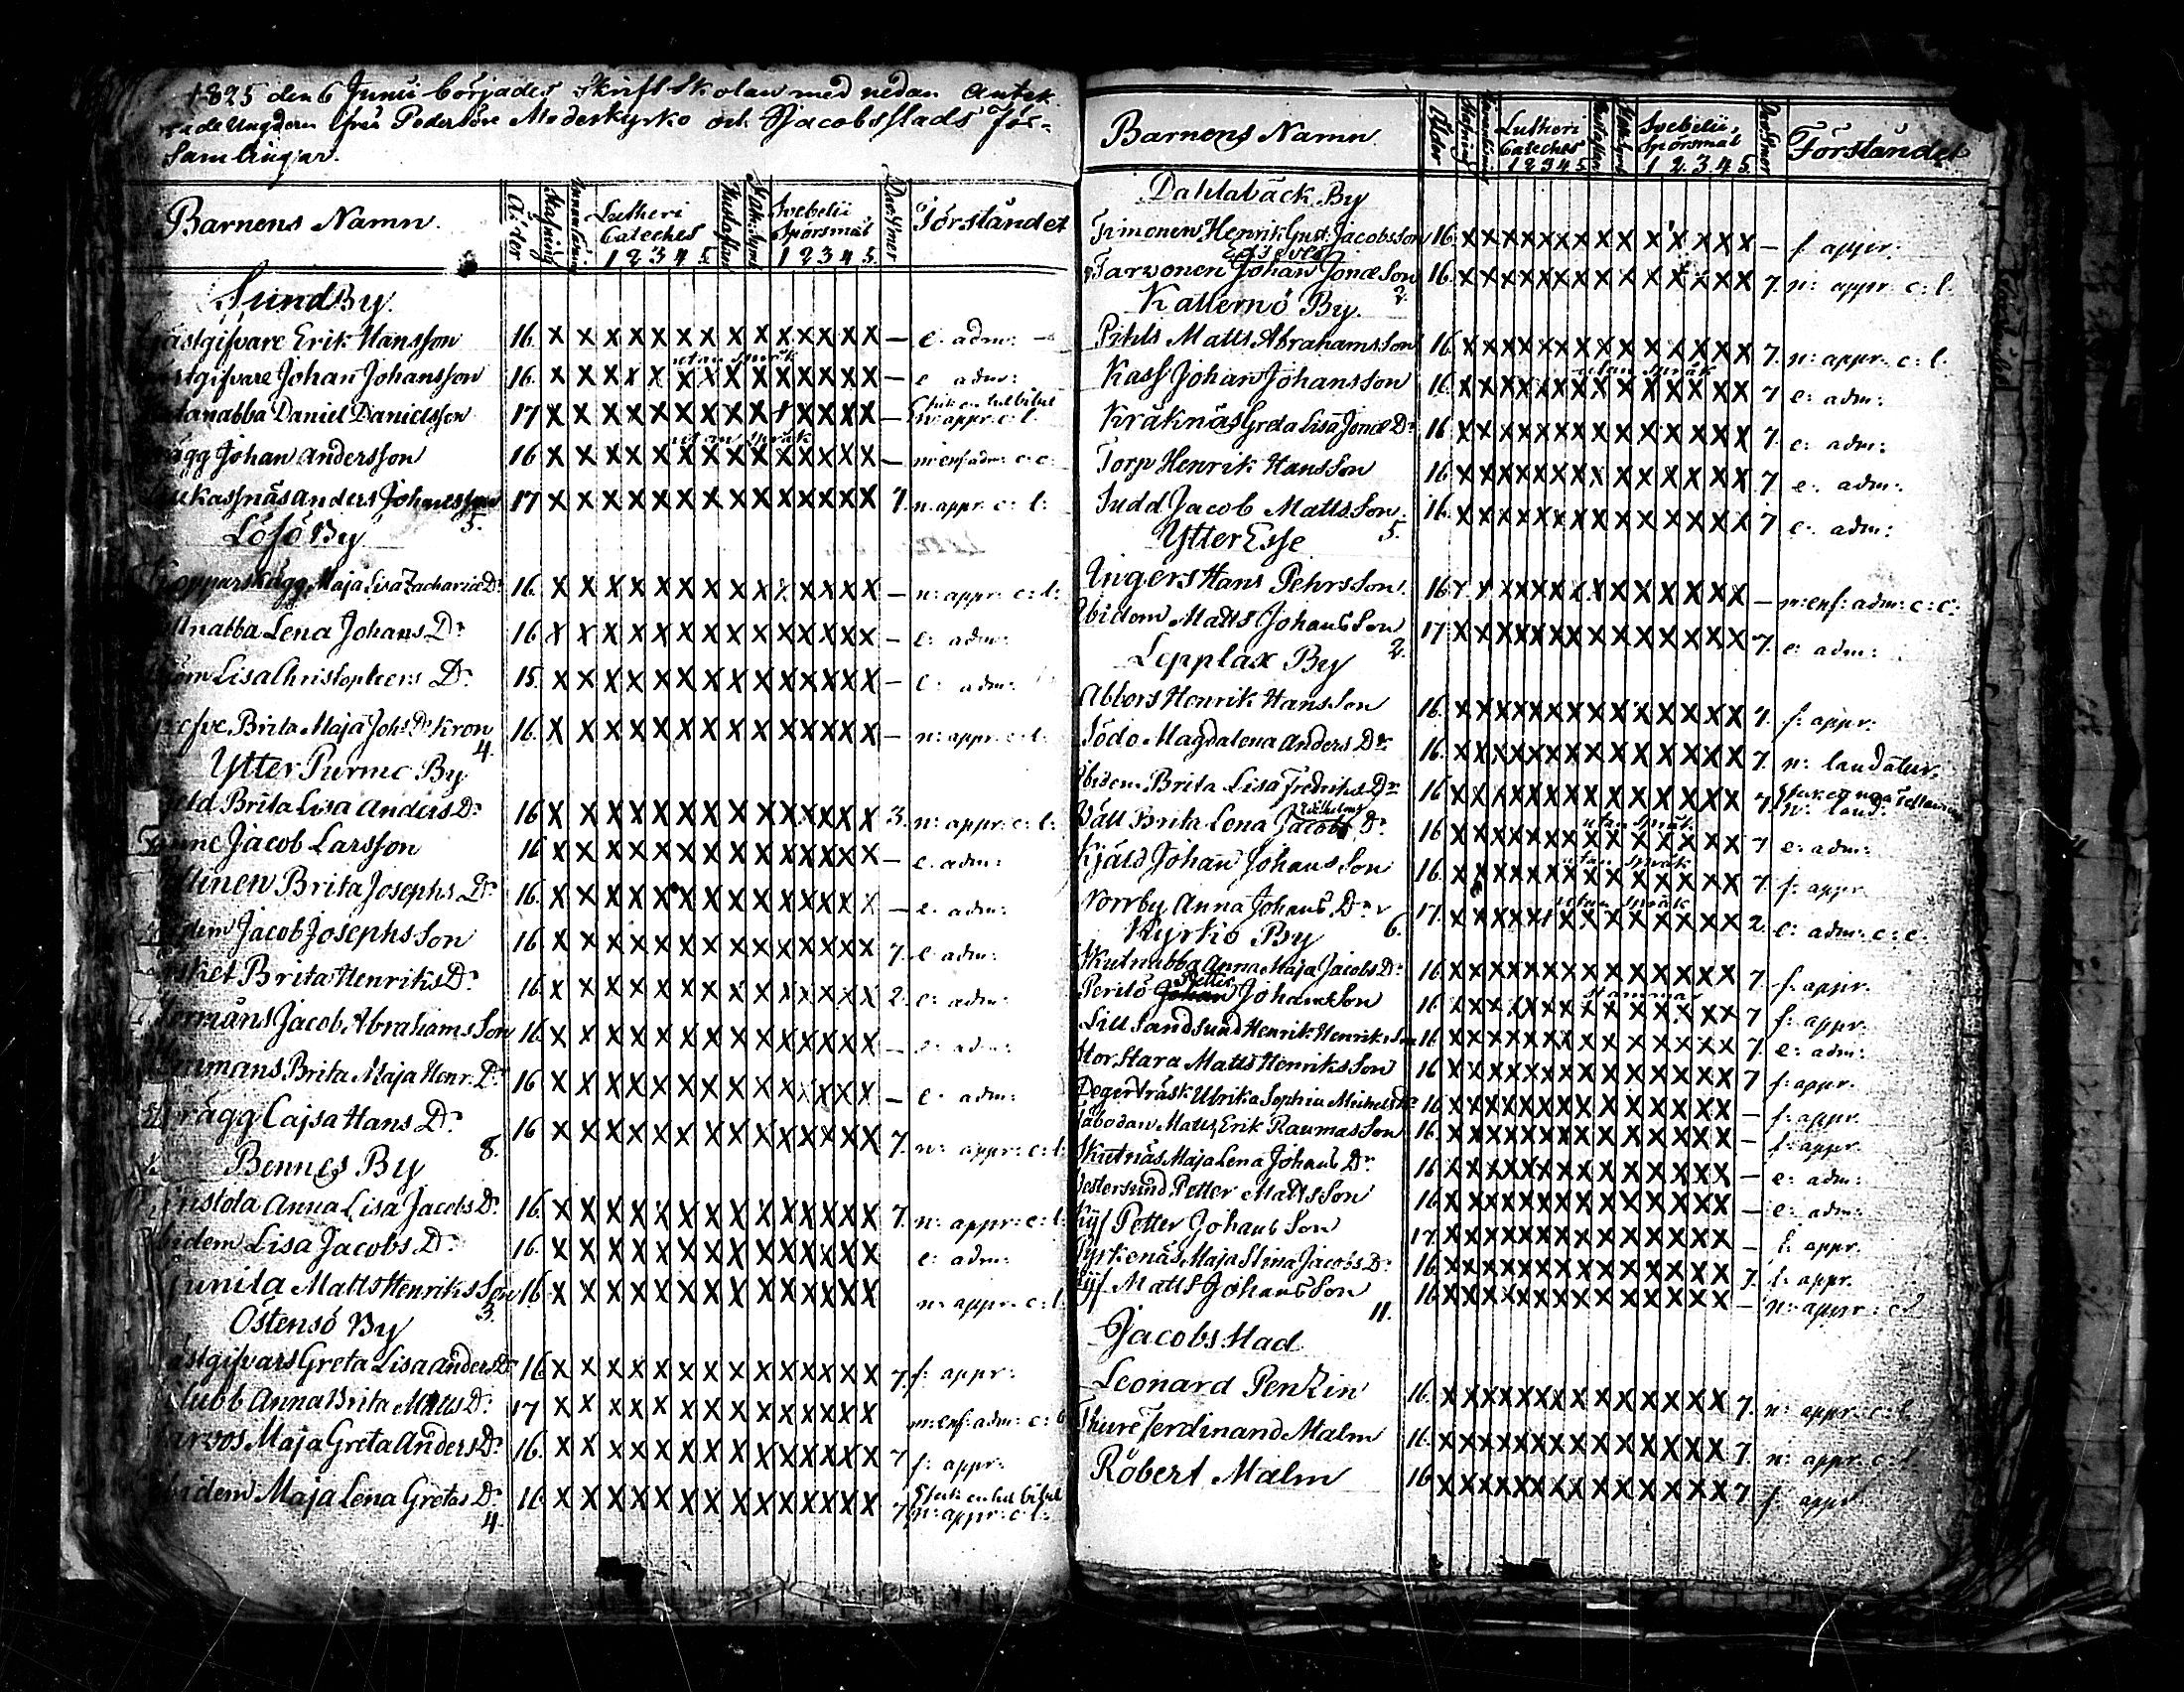 1825 den 6 Junii börjades Skriftskolan med nedan Anteknade Ungdom ifrån Pedersöre Moderkyrko och Jacobsstads För-
samlingar.
Barnens Namn. Ålder Stafning Innanläsning Lutheri Cateches 1 2 3 4 5. Hustaflan Svebelii Spörsmål 1 2 3 4 5. Dav: Ps:mer Förståndet
Sund By.
Gästgifvare Erik Hansson 16. X X X X X X X X X X X X X X — e. adm: —
utan språk
Gästgifvare Johan Johansson 16. X X X X X X X X X X X X X X — e adm:
Daniel Danielsson 17 X X X X X X X X X X X X X X — n: appr: c: l:
utan språk
Johan Andersson 16 X X X X X X X X X X X X X X — m: enf: adm: c: c:
Anders Johansson 17 X X X X X X X X X X X X X X 7. n: appr: c: l:
5.
Löfö By
Maja Lisa Zachariæ Dr 16. X X X X X X X X X X X X X X — n: appr: c: l:
Lena Johans Dr 16 X X X X X X X X X X X X X X — e: adm:
Lisa Christophers Dr 15. X X X X X X X X X X X X X X — e: adm:
Brita Maja Johs Dr Kron 16. X X X X X X X X X X X X X X — n: appr: c: l:
4.
Ytter Purmo By
Brita Lisa Anders Dr 16 X X X X X X X X X X X X X X 3. n: appr: c: l:
Jacob Larsson 16 X X X X X X X X X X X X X X — e. adm:
Brita Josephs Dr 16. X X X X X X X X X X X X X X — e. adm:
Ibidem Jacob Josephs Son 16 X X X X X X X X X X X X X X 7 e adm:
Brita Henriks Dr 16. X X X X X X X X X X X X X X 2. e: adm:
Jacob Abrahams Son 16. X X X X X X X X X X X X X X — e: adm:
Brita Maja Henr. Dr 16 X X X X X X X X X X X X X X — e. adm:
Cajsa Hans Dr 16 X X X X X X X X X X X X X X 7. n: appr: c: l:
8.
Bennes By
Anna Lisa Jacobs Dr 16. X X X X X X X X X X X X X X 7. n: appr: c: l:
Ibidem Lisa Jacobs Dr 16. X X X X X X X X X X X X X X e: adm:
Gunila Matts Henriks Son 16. X X X X X X X X X X X X X X n: appr: c: l:
3.
Östensö By
Gästgifvars Greta Lisa Anders Dr 16 X X X X X X X X X X X X X X 7 f: appr:
Anna Brita Matts Dr 17 X X X X X X X X X X X X X X m: enf: adm: c: c:
Maja Greta Anders Dr 16. X X X X X X X X X X X X X X 7 f: appr:
Ibidem Maja Lena Gretas Dr 16. X X X X X X X X X X X X X X 7 n: appr: c: l:
4.
Barnens Namn Ålder Stafning Lutheri Cateches 1 2 3 4 5. Svebelii Spörsmål 1 2. 3. 4. 5. Förståndet
Dahlabäck By
Timonen Henrik Gust: Jacobsson 16. X X X X X X X X X X X X X X — f appr:
Tarvonen Johan Jonæ Son 16. X X X X X X X X X X X X X X 7. n: appr: c: l:
2.
Kallernö By.
Pihls Matts Abrahams Son 16. X X X X X X X X X X X X X X 7. n: appr: c: l:
utan språk
Kass Johan Johans Son 16. X X X X X X X X X X X X X X 7 e: adm:
Kråknäs Greta Lisa Jonæ Dr 16 X X X X X X X X X X X X X X 7. e: adm:
Torp Henrik Hans Son 16. X X X X X X X X X X X X X X 7 e: adm:
Judd Jacob Matts Son 16. X X X X X X X X X X X X X X 7 e: adm:
5.
Ytter Esse
Ungers Hans Pehrs Son. 16 X X X X X X X X X X X X X X — m: enf: adm: c: c:
Ibidem Matts Johans Son 17 X X X X X X X X X X X X X X 7. e: adm:
2.
Lepplax By
Abbors Henrik Hans Son 16. X X X X X X X X X X X X X X 7. f: appr:
Södö Magdalena Anders Dr 16. X X X X X X X X X X X X X X 7. n: laudatur.
Ibidem Brita Lisa Fredriks Dr 16 X X X X X X X X X X X X X X 7. n: laud:
utan språk
Brita Lena Jacobs Dr 16 X X X X X X X X X X X X X X 7 e: adm:
utan språk
Kjäld Johan Johans Son 16. X X X X X X X X X X X X X X 7. f: appr
utan språk
Norrby Anna Johans Dr 17. X X X X X X X X X X X X X X 2. e: adm: c: c:
6.
Kyrko By
Skutnabba Anna Maja Jacobs Dr 16 X X X X X X X X X X X X X X 7. f: appr.
Petter
Perilö Johan Johans Son 16. X X X X X X X X X X X X X X 7 f: appr.
Lill Sandsund Henrik Henriks Son 16. X X X X X X X X X X X X X X 7. e: adm:
Stor Stara Matts Henriks Son 16 X X X X X X X X X X X X X X 7 f: appr.
Degerträsk Ulrika Sophia Michels Dr 16 X X X X X X X X X X X X X X — f: appr.
Matts Erik Raumas Son 16. X X X X X X X X X X X X X X — f: appr.
Skutnäs Maja Lena Johans Dr 16 X X X X X X X X X X X X X X — e: adm:
Vestersund Petter Matts Son 16 X X X X X X X X X X X X X X — e: adm:
Petter Johans Son 17. X X X X X X X X X X X X X X — f: appr.
Maja Stina Jacobs Dr 16 X X X X X X X X X X X X X X 7. f: appr.
Matts Johans Son 16 X X X X X X X X X X X X X X — n: appr: c: l
11.
Jacobstad
Leonard Penzin 16. X X X X X X X X X X X X X X 7. n: appr: c: l.
Thure Ferdinand Malm 16. X X X X X X X X X X X X X X 7. n: appr: c: l.
Robert Malm 16 X X X X X X X X X X X X X X 7 f: appr